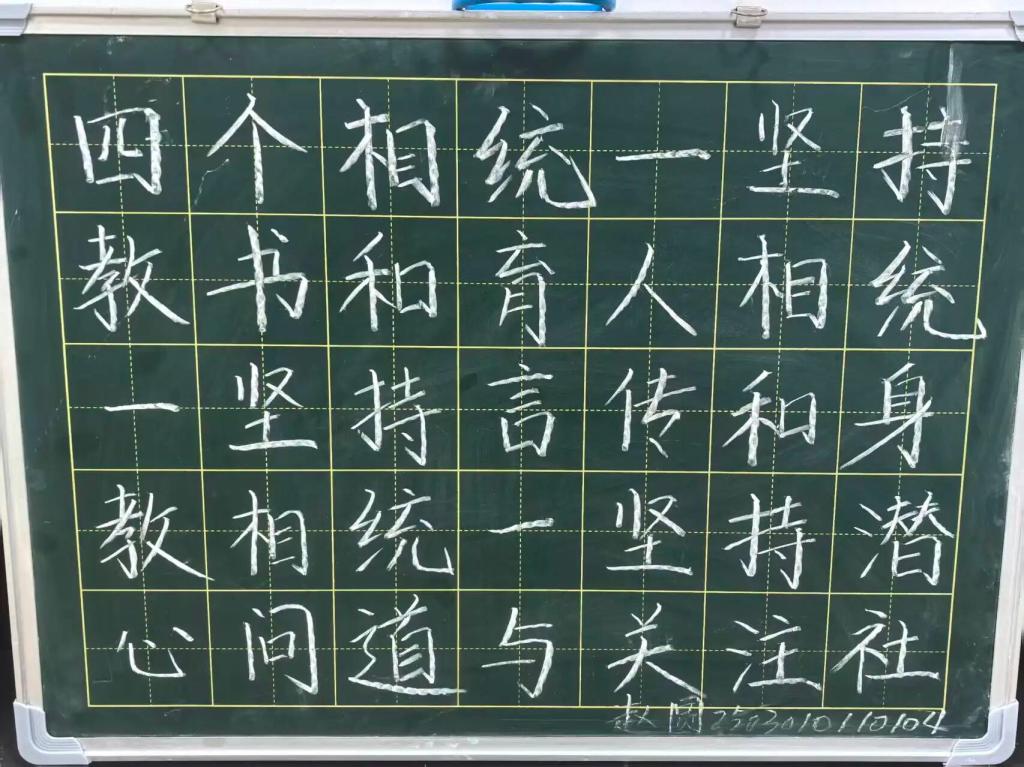 四个相统一坚持
教书和育人相统
一坚持言传和身
教相统一坚持潜
心问道与关注社
赵圆2503010110104